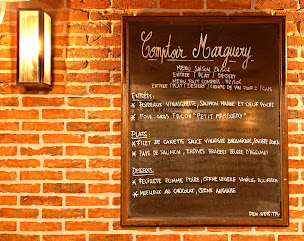 Comptoir Marguery
MENU SAISON
ENTREE / PLAT / DESSERT
MENU TOUT COMPRIS
ENTREE / PLAT / DESSERT / VERRE DE VIN
ENTRÉES:
* POIREAUX VINAIGRETTE, SAUMON MARINÉ ET OEUF POCHÉ
* FOIE GRAS FAÇON "PETIT MARGUERY"
PLATS:
* FILET DE CANETTE SAUCE VINAIGRE BALSAMIQUE,
* PAVÉ DE SAUMON, ENDIVES BRAISÉES BEURRE D'AGRUMES
DESSERTS:
* FEUILLETÉ POMME POIRE, CREME LEGERE VANILLE BOURBON
* MOELLEUX AU CHOCOLAT, CREME ANGLAISE